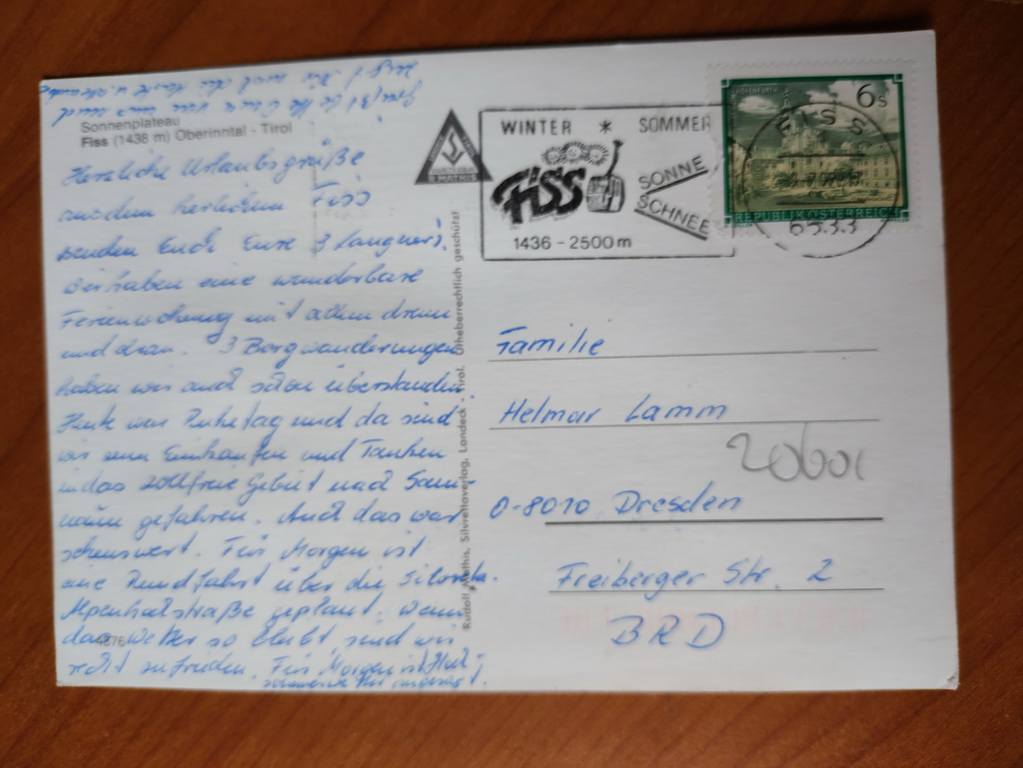 Sonnenplateau
Fiss (1438 m) Oberinntal - Tirol
Herzliche Urlaubsgrüße
aus dem herrlichen Fiss
senden Euch Eure 3 Langners.
Wir haben eine wunderbare
Ferienwohnung mit allem drum
und dran. 3 Bergwanderungen
haben wir auch schon überstanden.
Heute war Ruhetag und da sind
wir zum Einkaufen und Tanken
in das zollfreie Gebiet nach Sam-
naun gefahren. Auch das war
sehenswert. Für Morgen ist
eine Rundfahrt über die Silvretta-
Alpenhochstraße geplant. Wenn
das Wetter so bleibt, sind wir
recht zufrieden. Für Morgen ist
angesagt.
4876
Rudolf Mathis, Silvrettaverlag, Landeck - Tirol. Urheberrechtlich geschützt
WINTER * SOMMER
FISS
SONNE
SCHNEE
1436 - 2500 m
6s
REPUBLIK ÖSTERREICH
FISS
6533
Familie
Helmar Lamm
O-8010 Dresden
Freiberger Str. 2
BRD